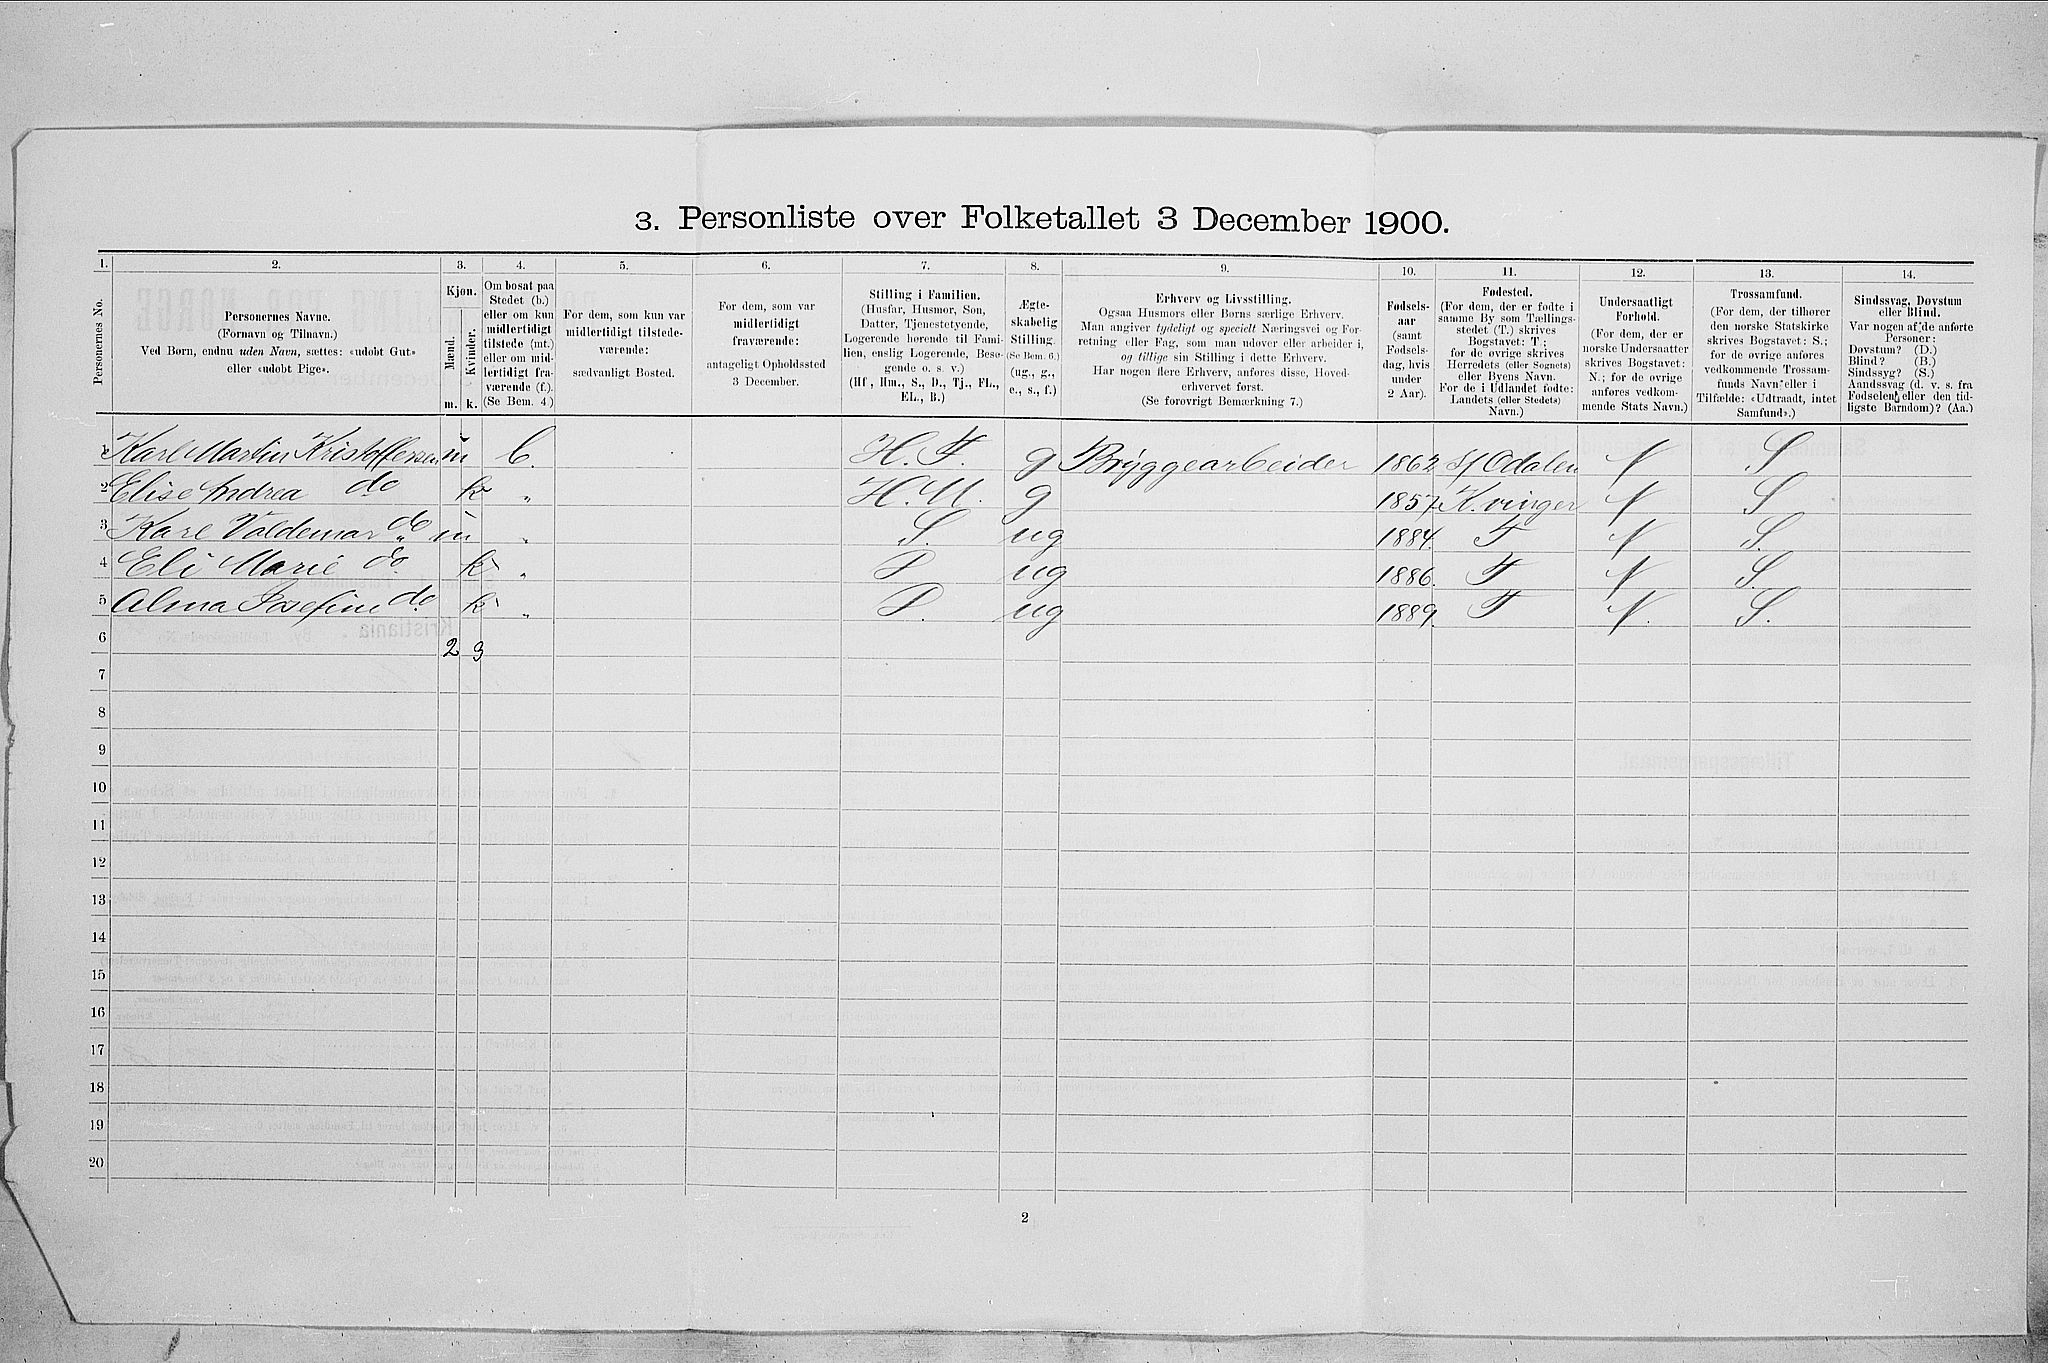 3. Personliste over Folketallet 3 December 1900.
1. 2. 3. 4. 5. 6. 7. 8. 9. 10. 11. 12. 13. 14.
Personernes No.
Personernes Navne.
(Fornavn og Tilnavn.)
Ved Børn, endnu uden Navn, sættes: «udøbt Gut»
eller «udøbt Pige».
Kjøn.
Mænd.
Kvinder.
m. k.
Om bosat paa
Stedet (b.)
eller om kun
midlertidigt
tilstede (mt.)
eller om mid-
lertidigt fra-
værende (f.).
(Se Bem. 4.)
For dem, som kun var
midlertidigt tilstede-
værende:
sædvanligt Bosted.
For dem, som var
midlertidigt
fraværende:
antageligt Opholdssted
3 December.
Stilling i Familien.
(Husfar, Husmor, Søn,
Datter, Tjenestetyende,
Logerende hørende til Fami-
lien, enslig Logerende, Besø-
gende o. s. v.)
(Hf, Hm., S., D., Tj., FL.,
EL., B.)
Ægte-
skabelig
Stilling.
(Se Bem. 6.)
(ug., g.,
e., s., f.)
Erhverv og Livsstilling.
Ogsaa Husmors eller Børns særlige Erhverv.
Man angiver tydeligt og specielt Næringsvei og For-
retning eller Fag, som man udøver eller arbeider i,
og tillige sin Stilling i dette Erhverv.
Har nogen flere Erhverv, anføres disse, Hoved-
erhvervet først.
(Se forøvrigt Bemærkning 7.)
Fødsels-
aar
(samt
Fødsels-
dag, hvis
under
2 Aar).
Fødested.
(For dem, der er fødte i
samme By som Tællings-
stedet (T.) skrives
Bogstavet: T.;
for de øvrige skrives
Herredets (eller Sognets)
eller Byens Navn.
For de i Udlandet fødte:
Landets (eller Stedets)
Navn.)
Undersaatligt
Forhold.
(For dem, der er
norske Undersaatter
skrives Bogstavet:
N.; for de øvrige
anføres vedkom-
mende Stats Navn.)
Trossamfund.
(For dem, der tilhører
den norske Statskirke
skrives Bogstavet: S.;
for de øvrige anføres
vedkommende Trossam-
funds Navn, eller i
Tilfælde: «Udtraadt, intet
Samfund».)
Sindssvag, Døvstum
eller Blind.
Var nogen af de anførte
Personer:
Døvstum? (D.)
Blind? (B.)
Sindssyg? (S.)
Aandssvag (d. v. s. fra
Fødselen eller den tid-
ligste Barndom)? (Aa.)
1 Karl Martin Kristoffersen m b. H. F. g Bryggearbeider 1862 S Odalen N S
2 Elise Andrea do k " H. M. g 1857 K.vinger N S
3 Karl Valdemar do m " S. ug 1884. T N S.
4 Eli Marie do k " D ug 1886. T N S
5 Alma Josefine do k " D. ug 1889. T N. S.
6
2 3
7
8
9
10
11
12
13
14
15
16
17
18
19
20
2